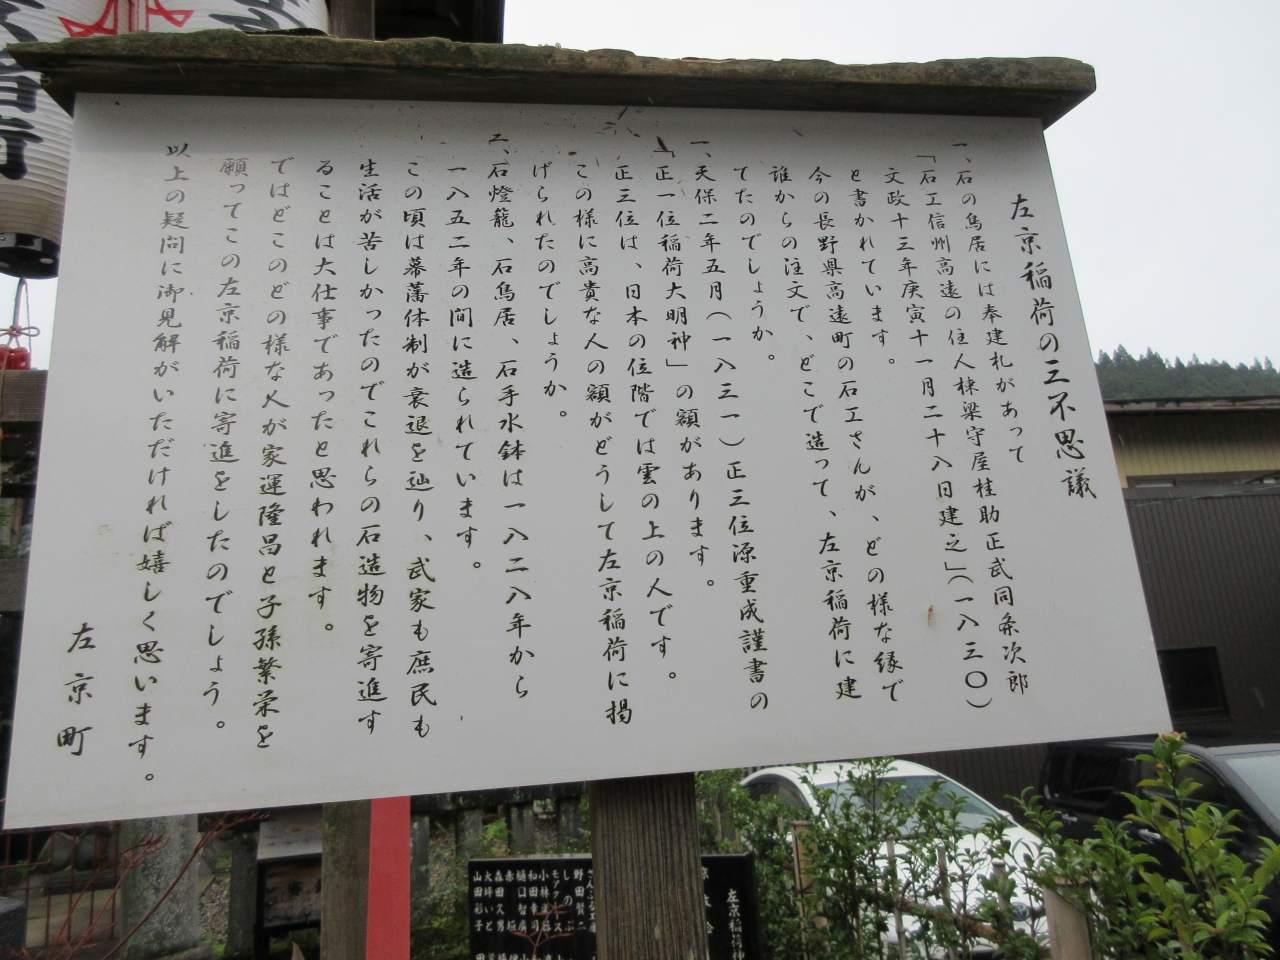 左京稲荷の三不思議
一、石の鳥居には奉建札があって
「石工信州高遠の住人棟梁守屋桂助正武同条次郎
文政十三年庚寅十一月二十八日建之」(一八三〇)
と書かれています。
今の長野県高遠町の石工さんが、どの様な縁で
誰からの注文で、どこで造って、左京稲荷に建
てたのでしょうか。
一、天保二年五月(一八三一)正三位源重成謹書の
「正一位稲荷大明神」の額があります。
正三位は、日本の位階では雲の上の人です。
この様に高貴な人の額がどうして左京稲荷に掲
げられたのでしょうか。
二、石燈籠、石鳥居、石手水鉢は一八二八年から
一八五二年の間に造られています。
この頃は幕藩体制が衰退を辿り、武家も庶民も
生活が苦しかったのでこれらの石造物を寄進す
ることは大仕事であったと思われます。
ではどこのどの様な人が家運隆昌と子孫繁栄を
願ってこの左京稲荷に寄進をしたのでしょう。
以上の疑問に御見解がいただければ嬉しく思います。
左京町
左京稲荷神